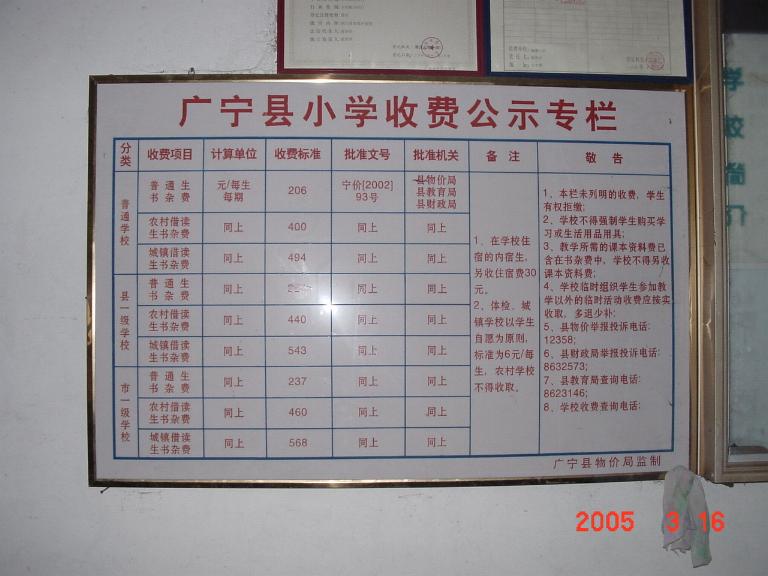 广宁县小学收费公示专栏
分类 收费项目 计算单位 收费标准 批准文号 批准机关 备注 敬告
普通学校
普通生书杂费 元/每生每期 206 宁价[2002]93号 县物价局 县教育局 县财政局
农村借读生书杂费 同上 400 同上 同上
城镇借读生书杂费 同上 494 同上 同上
县一级学校
普通生书杂费 同上 同上 同上
农村借读生书杂费 同上 440 同上 同上
城镇借读生书杂费 同上 543 同上 同上
市一级学校
普通生书杂费 同上 237 同上 同上
农村借读生书杂费 同上 460 同上 同上
城镇借读生书杂费 同上 568 同上 同上
1、在学校住
宿的内宿生,
另收住宿费30
元。
2、体检、城
镇学校以学生
自愿为原则,
标准为6元/每
生,农村学校
不得收取。
1、本栏未列明的收费,学生
有权拒缴;
2、学校不得强制学生购买学
习或生活用品用具;
3、教学所需的课本资料费已
含在书杂费中,学校不得另收
课本资料费;
4、学校临时组织学生参加教
学以外的临时活动收费应按实
收取,多退少补;
5、县物价举报投诉电话:
12358;
6、县财政局举报投诉电话:
8632573;
7、县教育局查询电话:
8623146;
8、学校收费查询电话:
广宁县物价局监制
学
校
2005 3 16